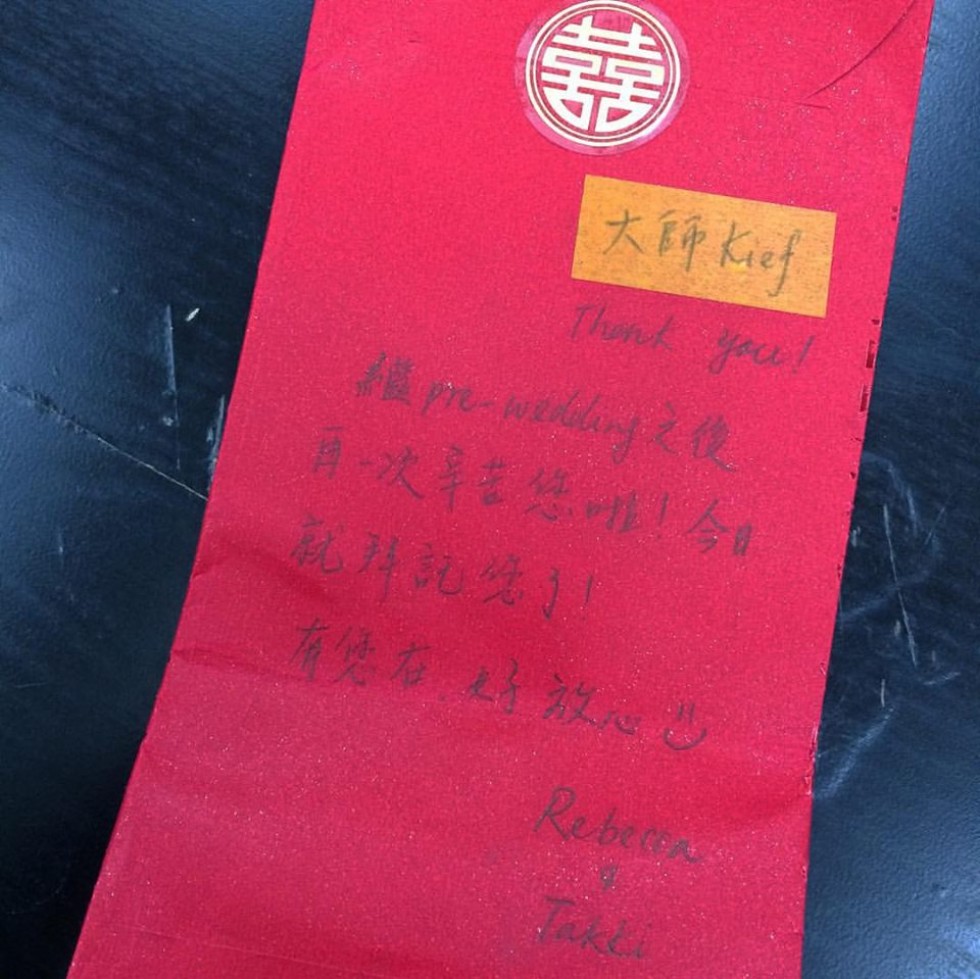 囍
大師 Kief
Thank you!
繼 pre-wedding 之後
再一次辛苦您啦！今日
就拜託您了！
有您在，好放心
Rebecca
&
Takki